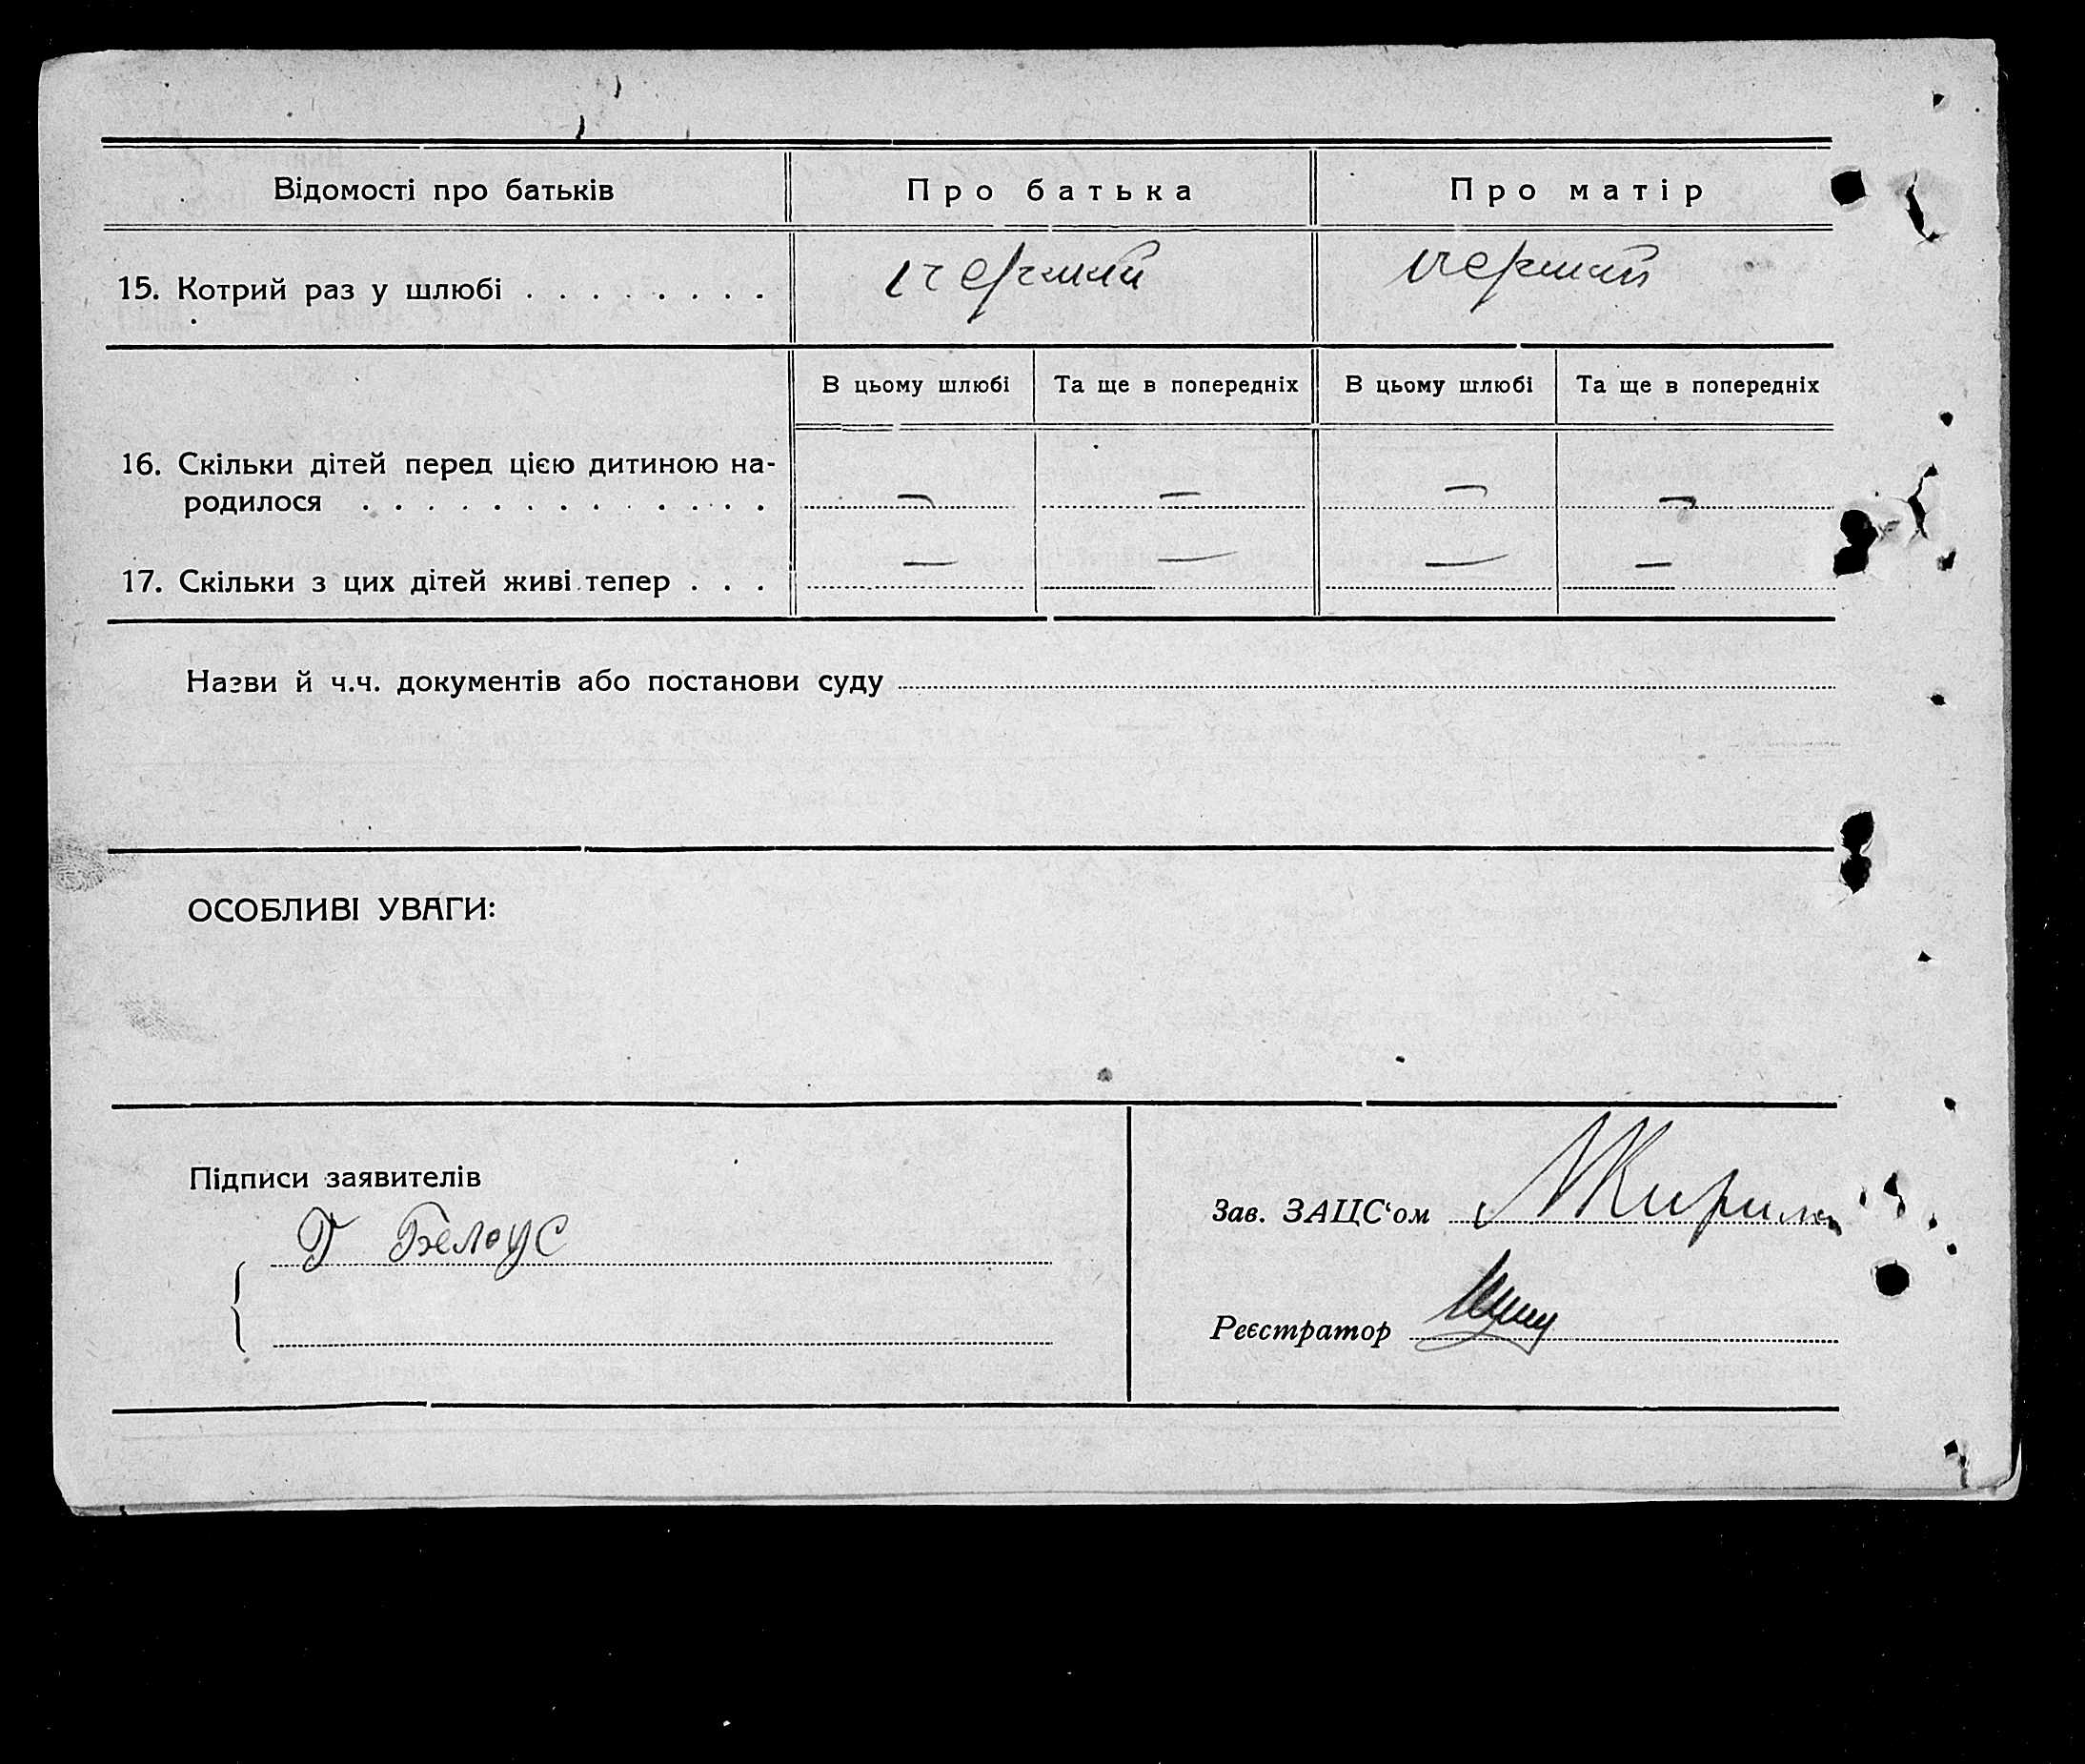 Відомості про батьків Про батька Про матір
15. Котрий раз у шлюбі . . . . . . . . перший перший
В цьому шлюбі Та ще в попередніх В цьому шлюбі Та ще в попередніх
16. Скільки дітей перед цією дитиною на-
родилося . . . . . . . . . . . . . — — — —
17. Скільки з цих дітей живі тепер . . . — — — —
Назви й ч.ч. документів або постанови суду
ОСОБЛИВІ УВАГИ:
Підписи заявителів
Г Белоус
Зав. ЗАЦС‘ом
Реєстратор